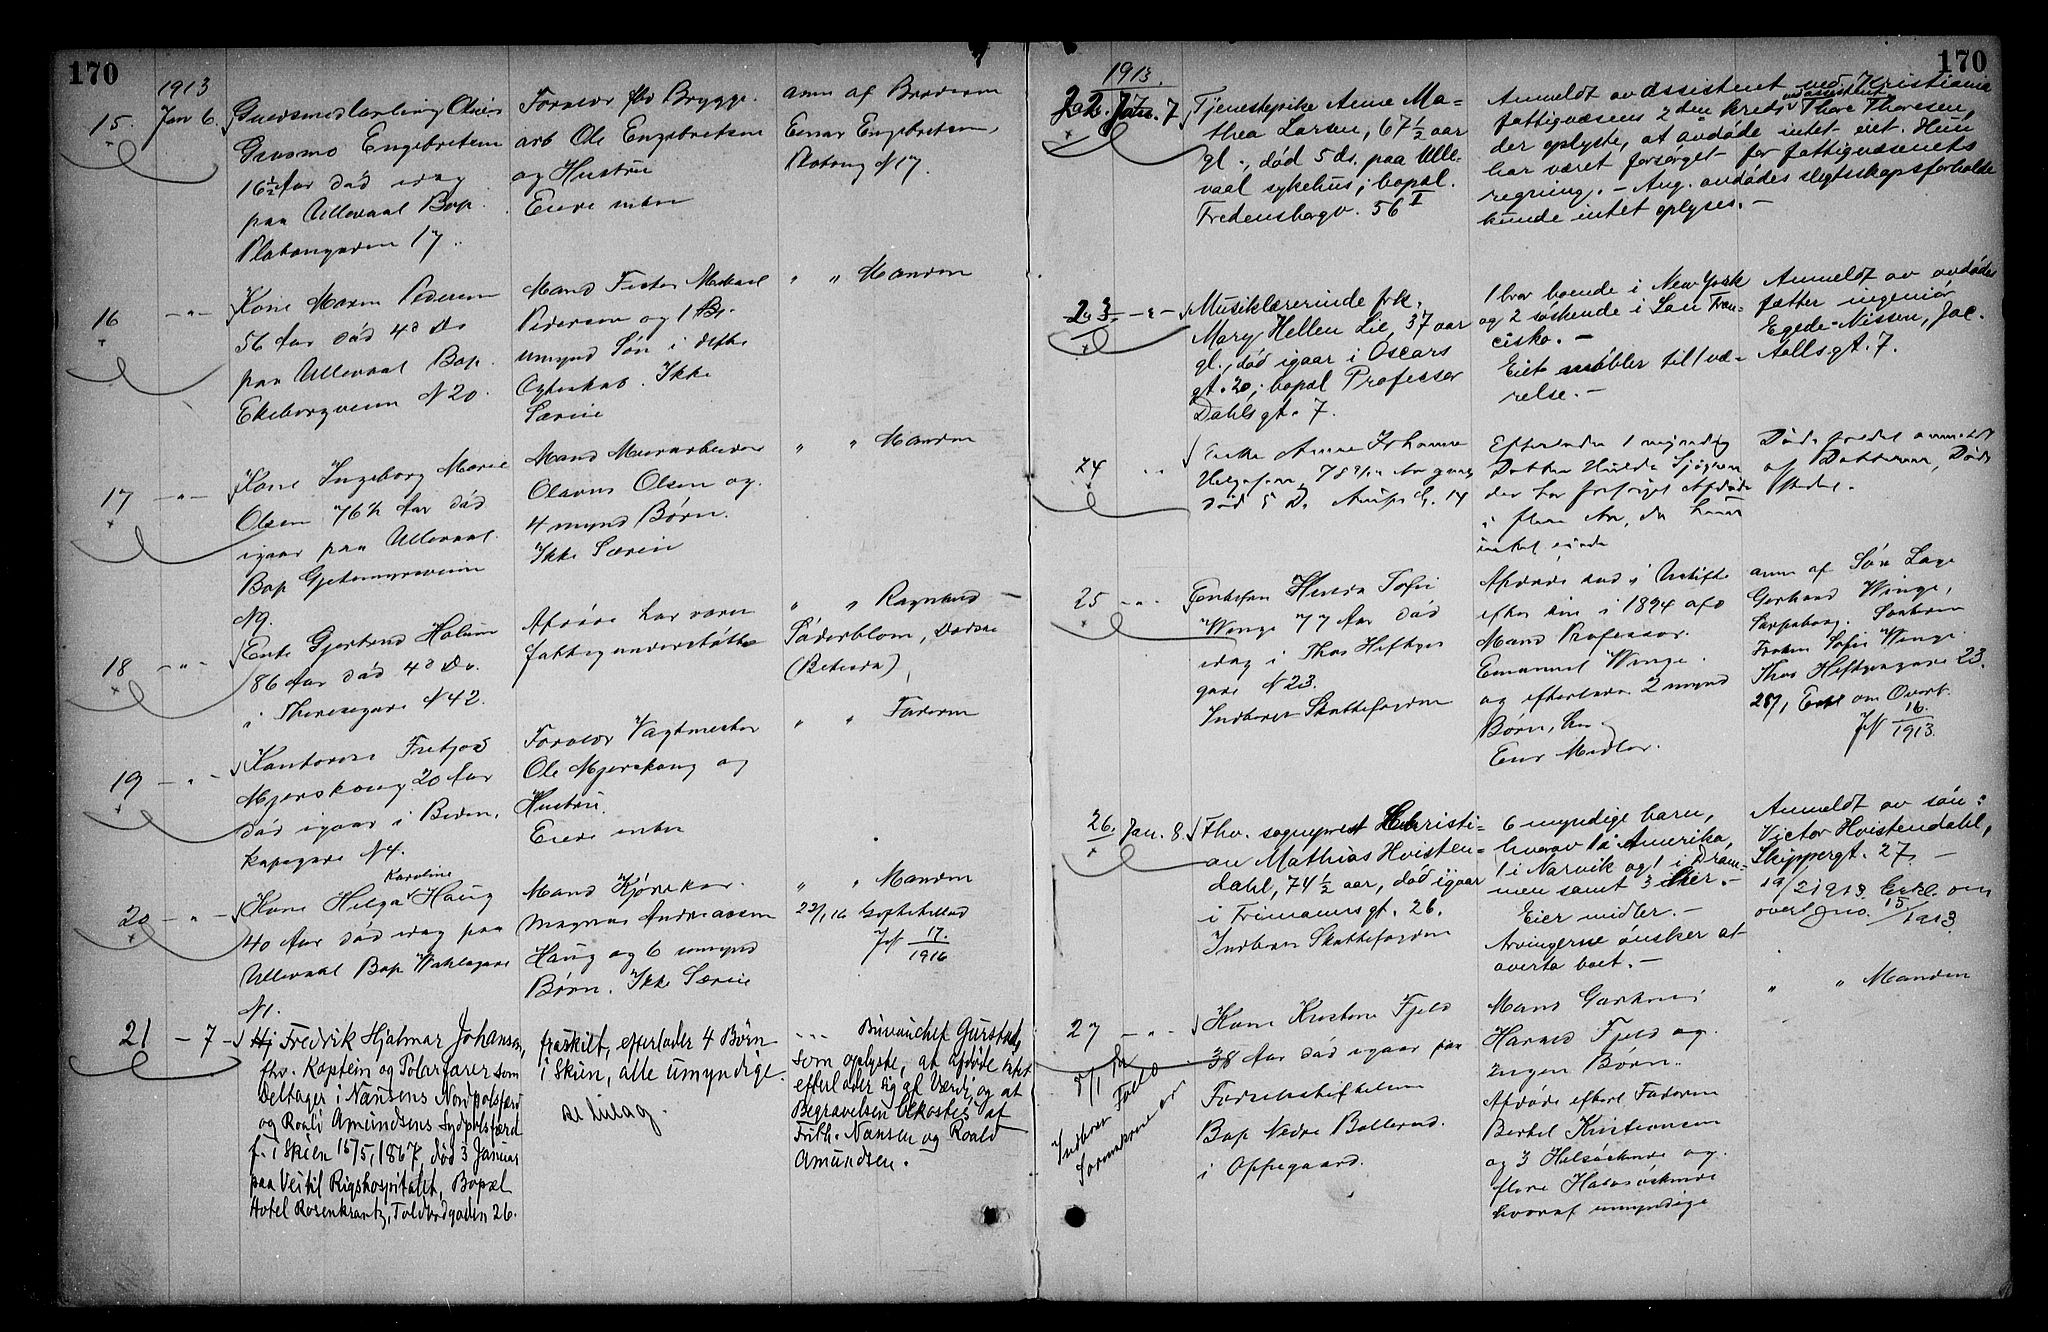 170
1913
15. Jan 6. Olaus
Engebretsen
16½ Aar død idag
paa Ullevaal Bop.
Platongaden 17.
Forældr fhv Brygge-
arb Ole Engebretsen
og Hustru
Eiede intet
anm af Broderen
Einar Engebretsen,
Platong N 17.
16 - " - Kone Maren Pedersen
56 Aar død 4de Ds
paa Ullevaal Bop.
Ekebergveien N 20.
Mand
Pedersen og 1
umynd Søn i dette
Ægteskab. Ikke
Særeie
" " Manden
17 - " - Kone Ingeborg Marie
Olsen 76½ Aar død
igaar paa Ullevaal.
Bop Gjetemyrsveien
N9.
Mand Murarbeider
Olsen og
4 mynd Børn.
Ikke Særeie
" " Manden
18 - " - Enke Gjertrud Holum
86 Aar død 4de Ds.
i Theresegade N 42.
Afdøde har været
fattigunderstøttet
" " Ragnhild
Söderblom,
(Betesda),
19 - " - Kontorist Fritjof
Mjerskoug 20 Aar
død igaar i
N 4.
Forældr Vagtmester
Ole Mjerskoug og
Hustru.
Eiede intet
" " Faderen
20 - " - Kone Helga Karoline Haug
40 Aar død idag paa
Ullevaal Bop
N1.
Mand Kjørekar
Magnus Andreassen
Haug og 6 umynd
Børn. Ikke Særeie
" " Manden
23/1 16
N 17.
1916
21 - 7 - Fredrik Hjalmar Johansen,
fhv. Kaptein og Polarfarer som
Deltager i Nansens Nordpolsfærd
og Roald Amundsens Sydpolsfærd
f. i Skien 15/5, 1867, død 3 Januar
paa Vei til Rigshospitalet, Bopæl
Hotel Rosenkrantz, Toldbodgaden 26.
fraskilt, efterlader 4 Børn
i Skien, alle umyndige.
se bilag.
- - - Büreauchef Gurstad,
som oplyste, at Afdøde intet
efterlader sig af Værdi og at
Begravelsen bekostes af
Fridtj. Nansen og Roald
Amundsen.
170
1913.
22. Jan. 7. Tjenestepike Anne Ma-
thea Larsen, 67½ aar
gl., død 5 ds. paa Ulle-
vaal sykehus; bopæl
Fredensborgv. 56 I
Anmeldt av assistent ved Kristiania
fattigvæsens 2den kreds Thore Thoresen,
der oplyste, at avdøde intet eiet. Hun
har været forsørget for fattigvæsenets
regning. - Ang. avdødes slegtsskapsforholde
kunde intet oplyses. -
23. - " - Musiklærerinde frk.
Mary Hellen Lie, 37 aar
gl., død igaar i Oscars
gt. 20; bopæl Professor
Dahls gt. 7.
1 bror boende i New York
og 2 søskende i San Fran-
cisko. -
Eiet møbler til 1 væ-
relse. -
Anmeldt av avdødes
fætter ingeniør
Egede-Nissen, Jac.
Aallsgt. 7.
24 " " Enke Anne Johanne
Helgesen, 78 Aar gml,
død 5 D.
Efterlader 1 myndig
Datter Hulda Sjøgren
der har forsørget Afdøde
i flere Aar, da hun
intet eiede
Dødsfaldet anmeldt
af Datteren, Døds
stedet.
25 - " - Enkefru Hulda Sofie
Winge 77 Aar død
idag i Thos Heftyes
gade N 23.
Indberet Skattefogden
Afdøde sad i Uskifte
efter sin i 1894 afd
Mand Professor
Emanuel Winge.
og efterlader 2 mynd
Børn,
Eier Midler.
anm af Søn Lage
Gerhard Winge,
Sarpsborg.
Frøken Sofie Winge.
Thos Heftyesgade 23.
28/1 Erkl om Overt.
N 16.
1913.
26. Jan. 8. Fhv. sogneprest Christi-
an Mathias Hvisten-
dahl, 74½ aar, død igaar
i Frimannsgt. 26.
Indberet Skattefogden
6 myndige barn,
hvorav 1 i Amerika,
1 i Narvik og 1 i Dram-
men samt 3 her. -
Eier midler. -
Arvingerne ønsker at
overta boet. -
Anmeldt av søn:
Victor Hvistendahl,
Skippergt. 27. -
19/2 1913 Erkl. om
overt. J no. 15/1913
27 - " - Kone Kristine Fjeld
38 Aar død igaar paa
Fødselsstiftelsen
Bop Nedre Ballerud.
i Oppegaard.
8/1
Indberet Foged
Sorenskriver
Mand Gartner
Harald Fjeld og
Ingen Børn.
Afdøde efterl Faderen
Bertel Kristiansen
og 3 Helsøskende og
flere Halvsøskende
hvoraf umyndige
" " Manden